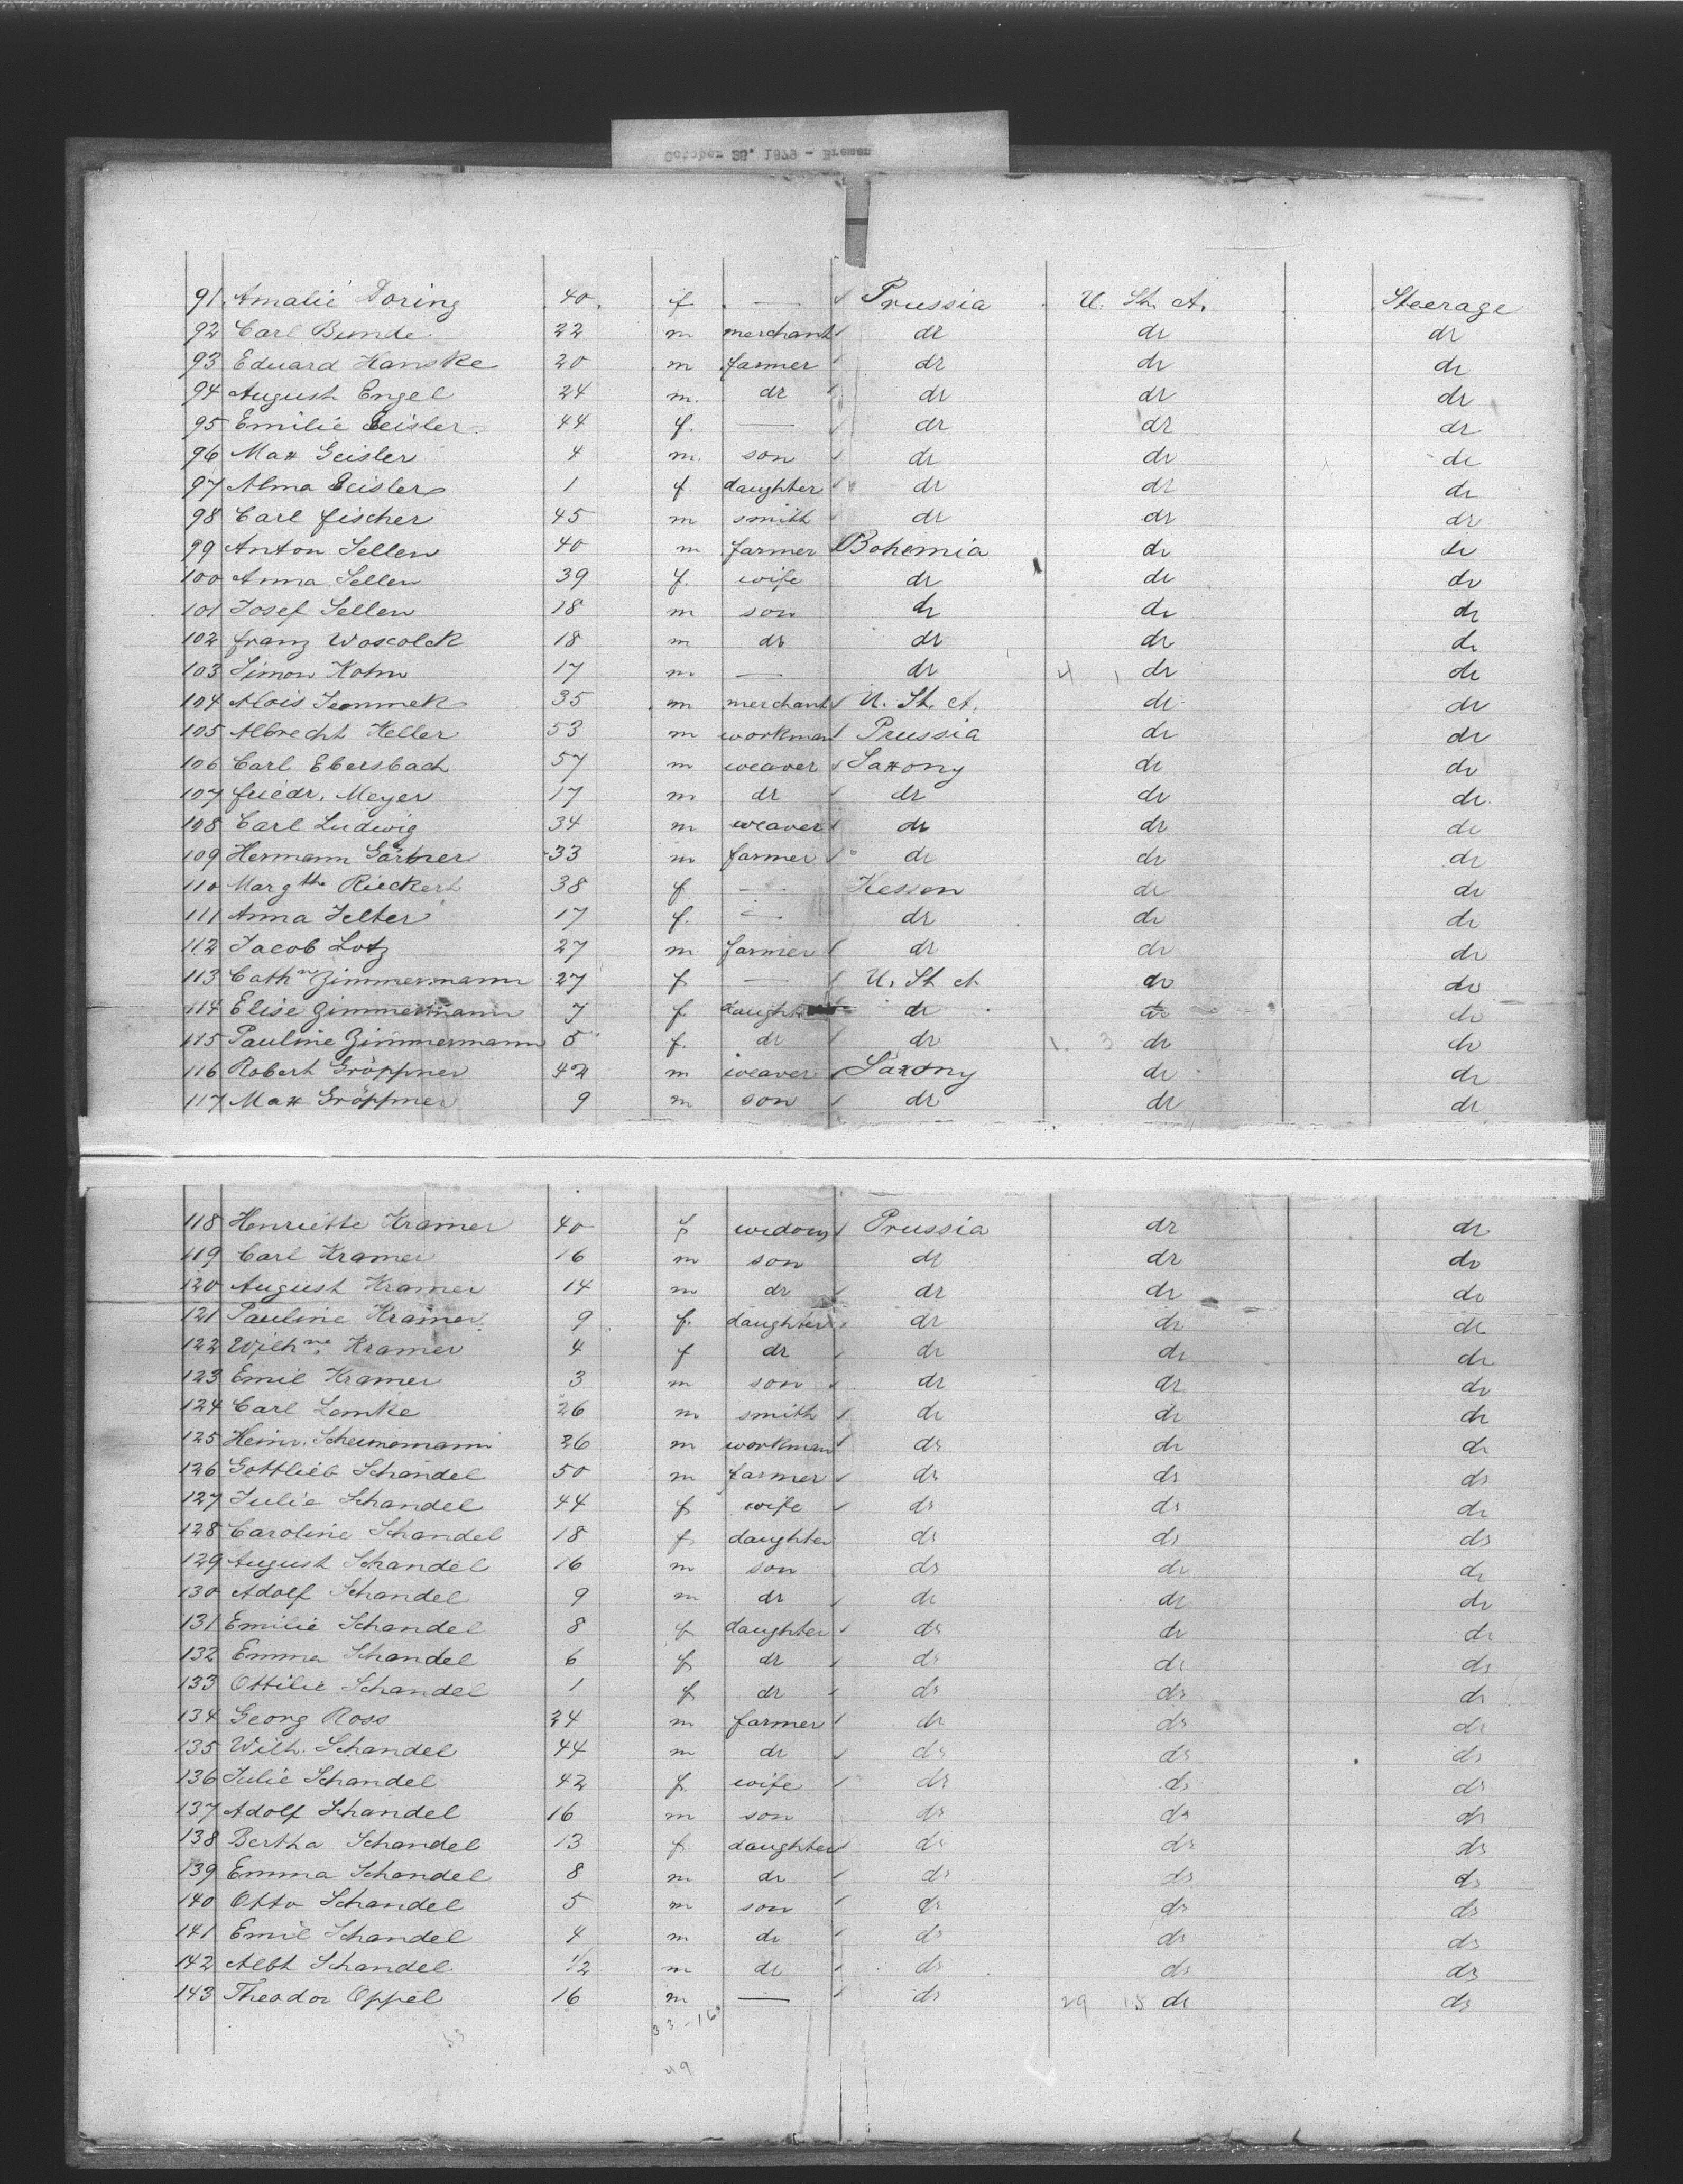 October 28. 1879 - Bremen
91 Amalie Doring 40 f — Prussia U. St. A. Steerage
92 Carl Bunde 22 m merchant dr dr dr
93 Eduard Hanske 20 m farmer dr dr dr
94 August Engel 24 m. dr dr dr dr
95 Emilie Geisler 44 f. — dr dr dr
96 Max Geisler 4 m. son dr dr dr
97 Alma Geisler 1 f daughter dr dr dr
98 Carl Fischer 45 m smith dr dr dr
99 Anton Sellen 40 m farmer Bohemia dr dr
100 Anna Sellen 39 f. wife dr dr dr
101 Josef Sellen 18 m son dr dr dr
102 Franz Woscolek 18 m dr dr dr dr
103 Simon Kohn 17 m — dr 4 1 dr dr
104 Alois 35 m merchant U. St. A. dr dr
105 Albrecht Heller 53 m workman Prussia dr dr
106 Carl Ebersbach 57 m weaver Saxony dr dr
107 Friedr. Meyer 17 m dr dr dr dr
108 Carl Ludwig 34 m weaver dr dr dr
109 Hermann Gärtner 33 m farmer dr dr dr
110 Margthe Rieckert 38 f — Hessen dr dr
111 Anna Felter 17 f. — dr dr dr
112 Jacob Lotz 27 m farmer dr dr dr
113 Cathne Zimmermann 27 f — U. St A dr dr
114 Elise Zimmermann 7 f daughter dr dr dr
115 Pauline Zimmermann 5 f. dr dr 1. 3 dr dr
116 Robert Gröppner 42 m weaver Saxony dr dr
117 Max Gröppner 9 m son dr dr dr
118 Henriette Kramer 40 f widow Prussia dr dr
119 Carl Kramer 16 m son dr dr dr
120 August Kramer 14 m dr dr dr dr
121 Pauline Kramer 9 f. daughter dr dr dr
122 Wilhne. Kramer 4 f dr dr dr dr
123 Emil Kramer 3 m son dr dr dr
124 Carl Lemke 26 m smith dr dr dr
125 Heinr. Scheinemann 26 m workman dr dr dr
126 Gottlieb Schandel 50 m farmer dr dr dr
127 Julie Schandel 44 f wife dr dr dr
128 Caroline Schandel 18 f daughter dr dr dr
129 August Schandel 16 m son dr dr dr
130 Adolf Schandel 9 m dr dr dr dr
131 Emilie Schandel 8 f daughter dr dr dr
132 Emma Schandel 6 f dr dr dr dr
133 Ottilie Schandel 1 f dr dr dr dr
134 Georg Ross 24 m farmer dr dr dr
135 Wilh. Schandel 44 m dr dr dr dr
136 Julie Schandel 42 f wife dr dr dr
137 Adolf Schandel 16 m son dr dr dr
138 Bertha Schandel 13 f daughter dr dr dr
139 Emma Schandel 8 m dr dr dr dr
140 Otto Schandel 5 m son dr dr dr
141 Emil Schandel 4 m dr dr dr dr
142 Albt Schandel 1/2 m dr dr dr dr
143 Theodor Oppel 16 m — dr 29 18 dr dr
33-16
49